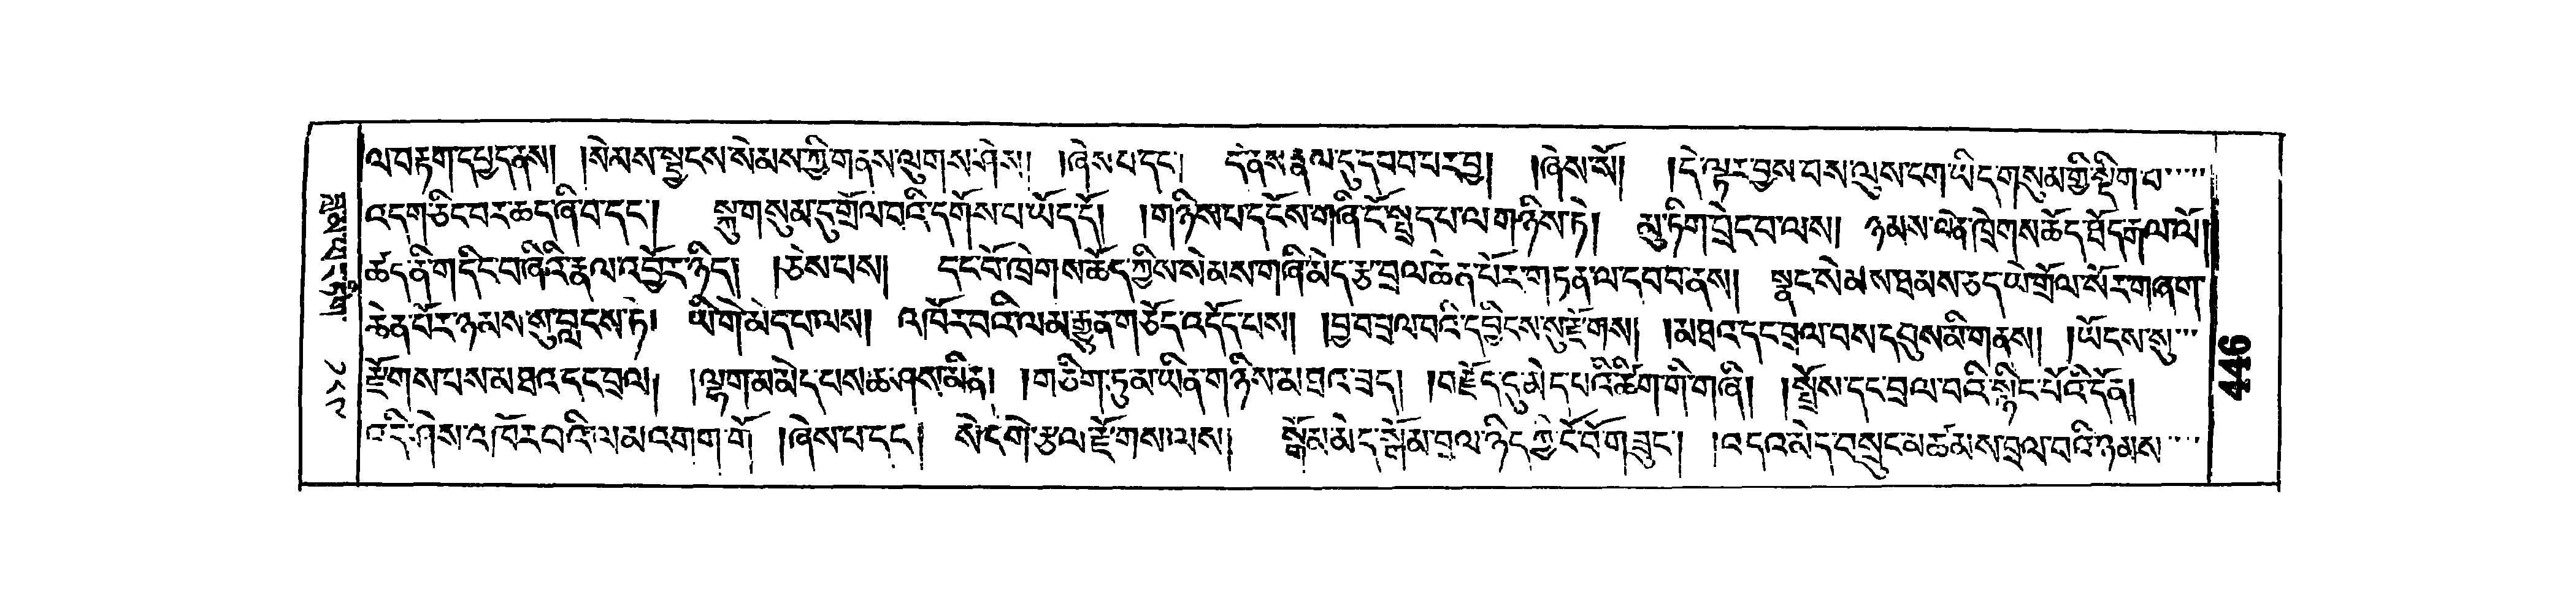 ལ་བརྟག་དཔྱད་ནས། །སེམས་སྦྱངས་སེམས་ཀྱི་གནས་ལུགས་ཤེས། །ཞེས་པ་དང་། དེ་ནས་རྣལ་དུ་དབབ་པར་བྱ། །ཞེས་སོ། །དེ་ལྟར་བྱས་པས་ལུས་ངག་ཡིད་གསུམ་གྱི་སྡིག་པ་་་་་
འདག་ཅིང་བར་ཆད་ཞི་བ་དང་། སྐུ་གསུམ་དུ་གྲོལ་བའི་དགོས་པ་ཡོད་དོ། །གཉིས་པ་དངོས་གཞི་ངོ་སྤྲད་པ་ལ་གཉིས་ཏེ། མུ་ཏིག་ཕྲེང་བ་ལས། ཉམས་ལེན་ཁྲེགས་ཆོད་ཐོད་རྒལ་ལོ། །
ཚད་ནི་གདིང་བ་ཞི་རི་རྣལ་འབྱོར་ཉིད། །ཅེས་པས། དང་པོ་ཁྲེགས་ཆོད་ཀྱིས་སེམས་གཞི་མེད་རྩ་བྲལ་ཆེན་པོར་གཏན་ལ་དབབ་ནས། སྣང་སེམས་ཐམས་ཅད་ཡེ་གྲོལ་སོར་གཞག་
ཆེན་པོར་ཉམས་སུ་བླངས་ཏེ། ཡི་གེ་མེད་པ་ལས། འཁོར་བའི་ལམ་རྒྱུན་གཅོད་འདོད་པས། །བྱ་བྲལ་བའི་དབྱིངས་སུ་རྫོགས། །མཐའ་དང་བྲལ་བས་དབུས་མི་གནས། །ཡོངས་སུ་་་
རྫོགས་པས་མཐའ་དང་བྲལ། །ལྷག་མ་མེད་པས་ཆ་ཤས་མིན། །གཅིག་ཏུ་མ་ཡིན་གཉིས་མཐའ་ཟད། །བརྗོད་དུ་མེད་པའི་ཚིག་གི་གཞི། །སྤྲོས་དང་བྲལ་བའི་སྙིང་པོའི་དོན།
འདི་ཤེས་འཁོར་བའི་ལམ་འགག་གོ །ཞེས་པ་དང་། སེང་གེ་རྩལ་རྫོགས་ལས། སྒོམ་མེད་སྒོམ་བྲལ་ཉིད་ཀྱི་ངོ་བོ་གཟུང་། །བདའ་མེད་བསྲུང་མཚམས་བྲལ་བའི་ཉམས་་་་